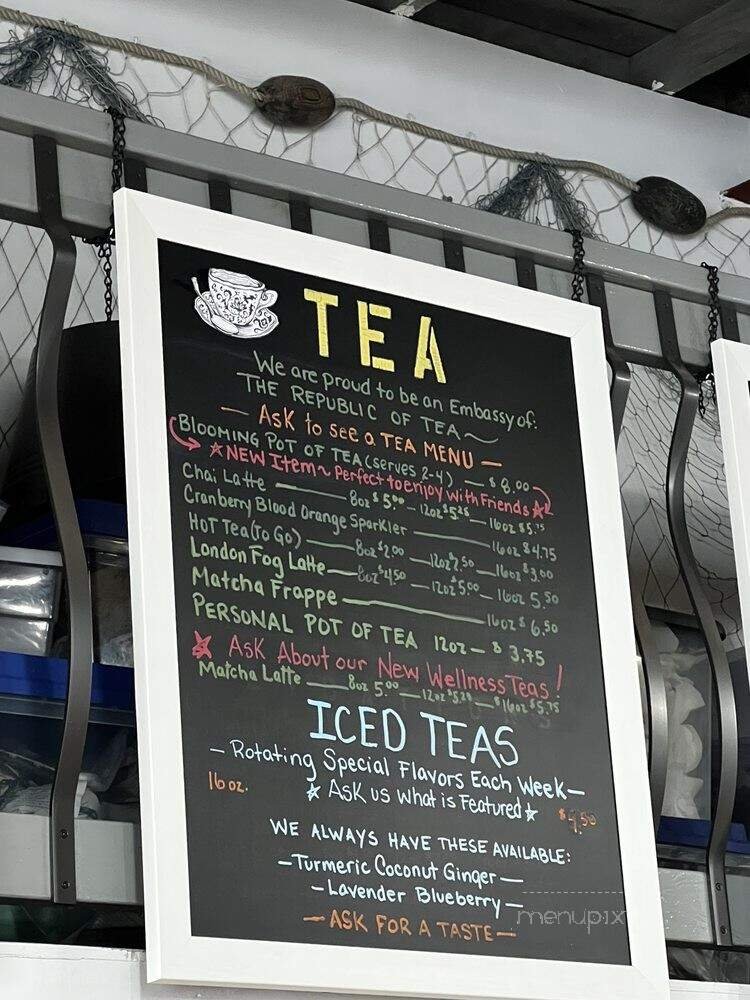 TEA
We are proud to be an Embassy of:
THE REPUBLIC OF TEA
— ASK to see a TEA MENU —
BLOOMING POT OF TEA (serves 2-4) — $8.00
☆ NEW Item ~ Perfect to enjoy with Friends ☆
Chai Latte — 8oz $5.00 — 12oz $5.25 — 16oz $5.75
Cranberry Blood Orange Sparkler — 16oz $4.75
HOT Tea (To Go) — 8oz $2.00 — 12oz 2.50 — 16oz $3.00
London Fog Latte — 8oz $4.50 — 12oz $5.00 — 16oz 5.50
Matcha Frappe — 16oz $6.50
PERSONAL POT OF TEA 12oz — $3.75
☆ Ask About our New Wellness Teas!
Matcha Latte — 8oz 5.00 — 12oz — $16oz $5.75
ICED TEAS
— Rotating Special Flavors Each Week —
16 oz. ☆ ASK us what is Featured ☆
WE ALWAYS HAVE THESE AVAILABLE:
— Turmeric Coconut Ginger —
— Lavender Blueberry —
— ASK FOR A TASTE —
menupix